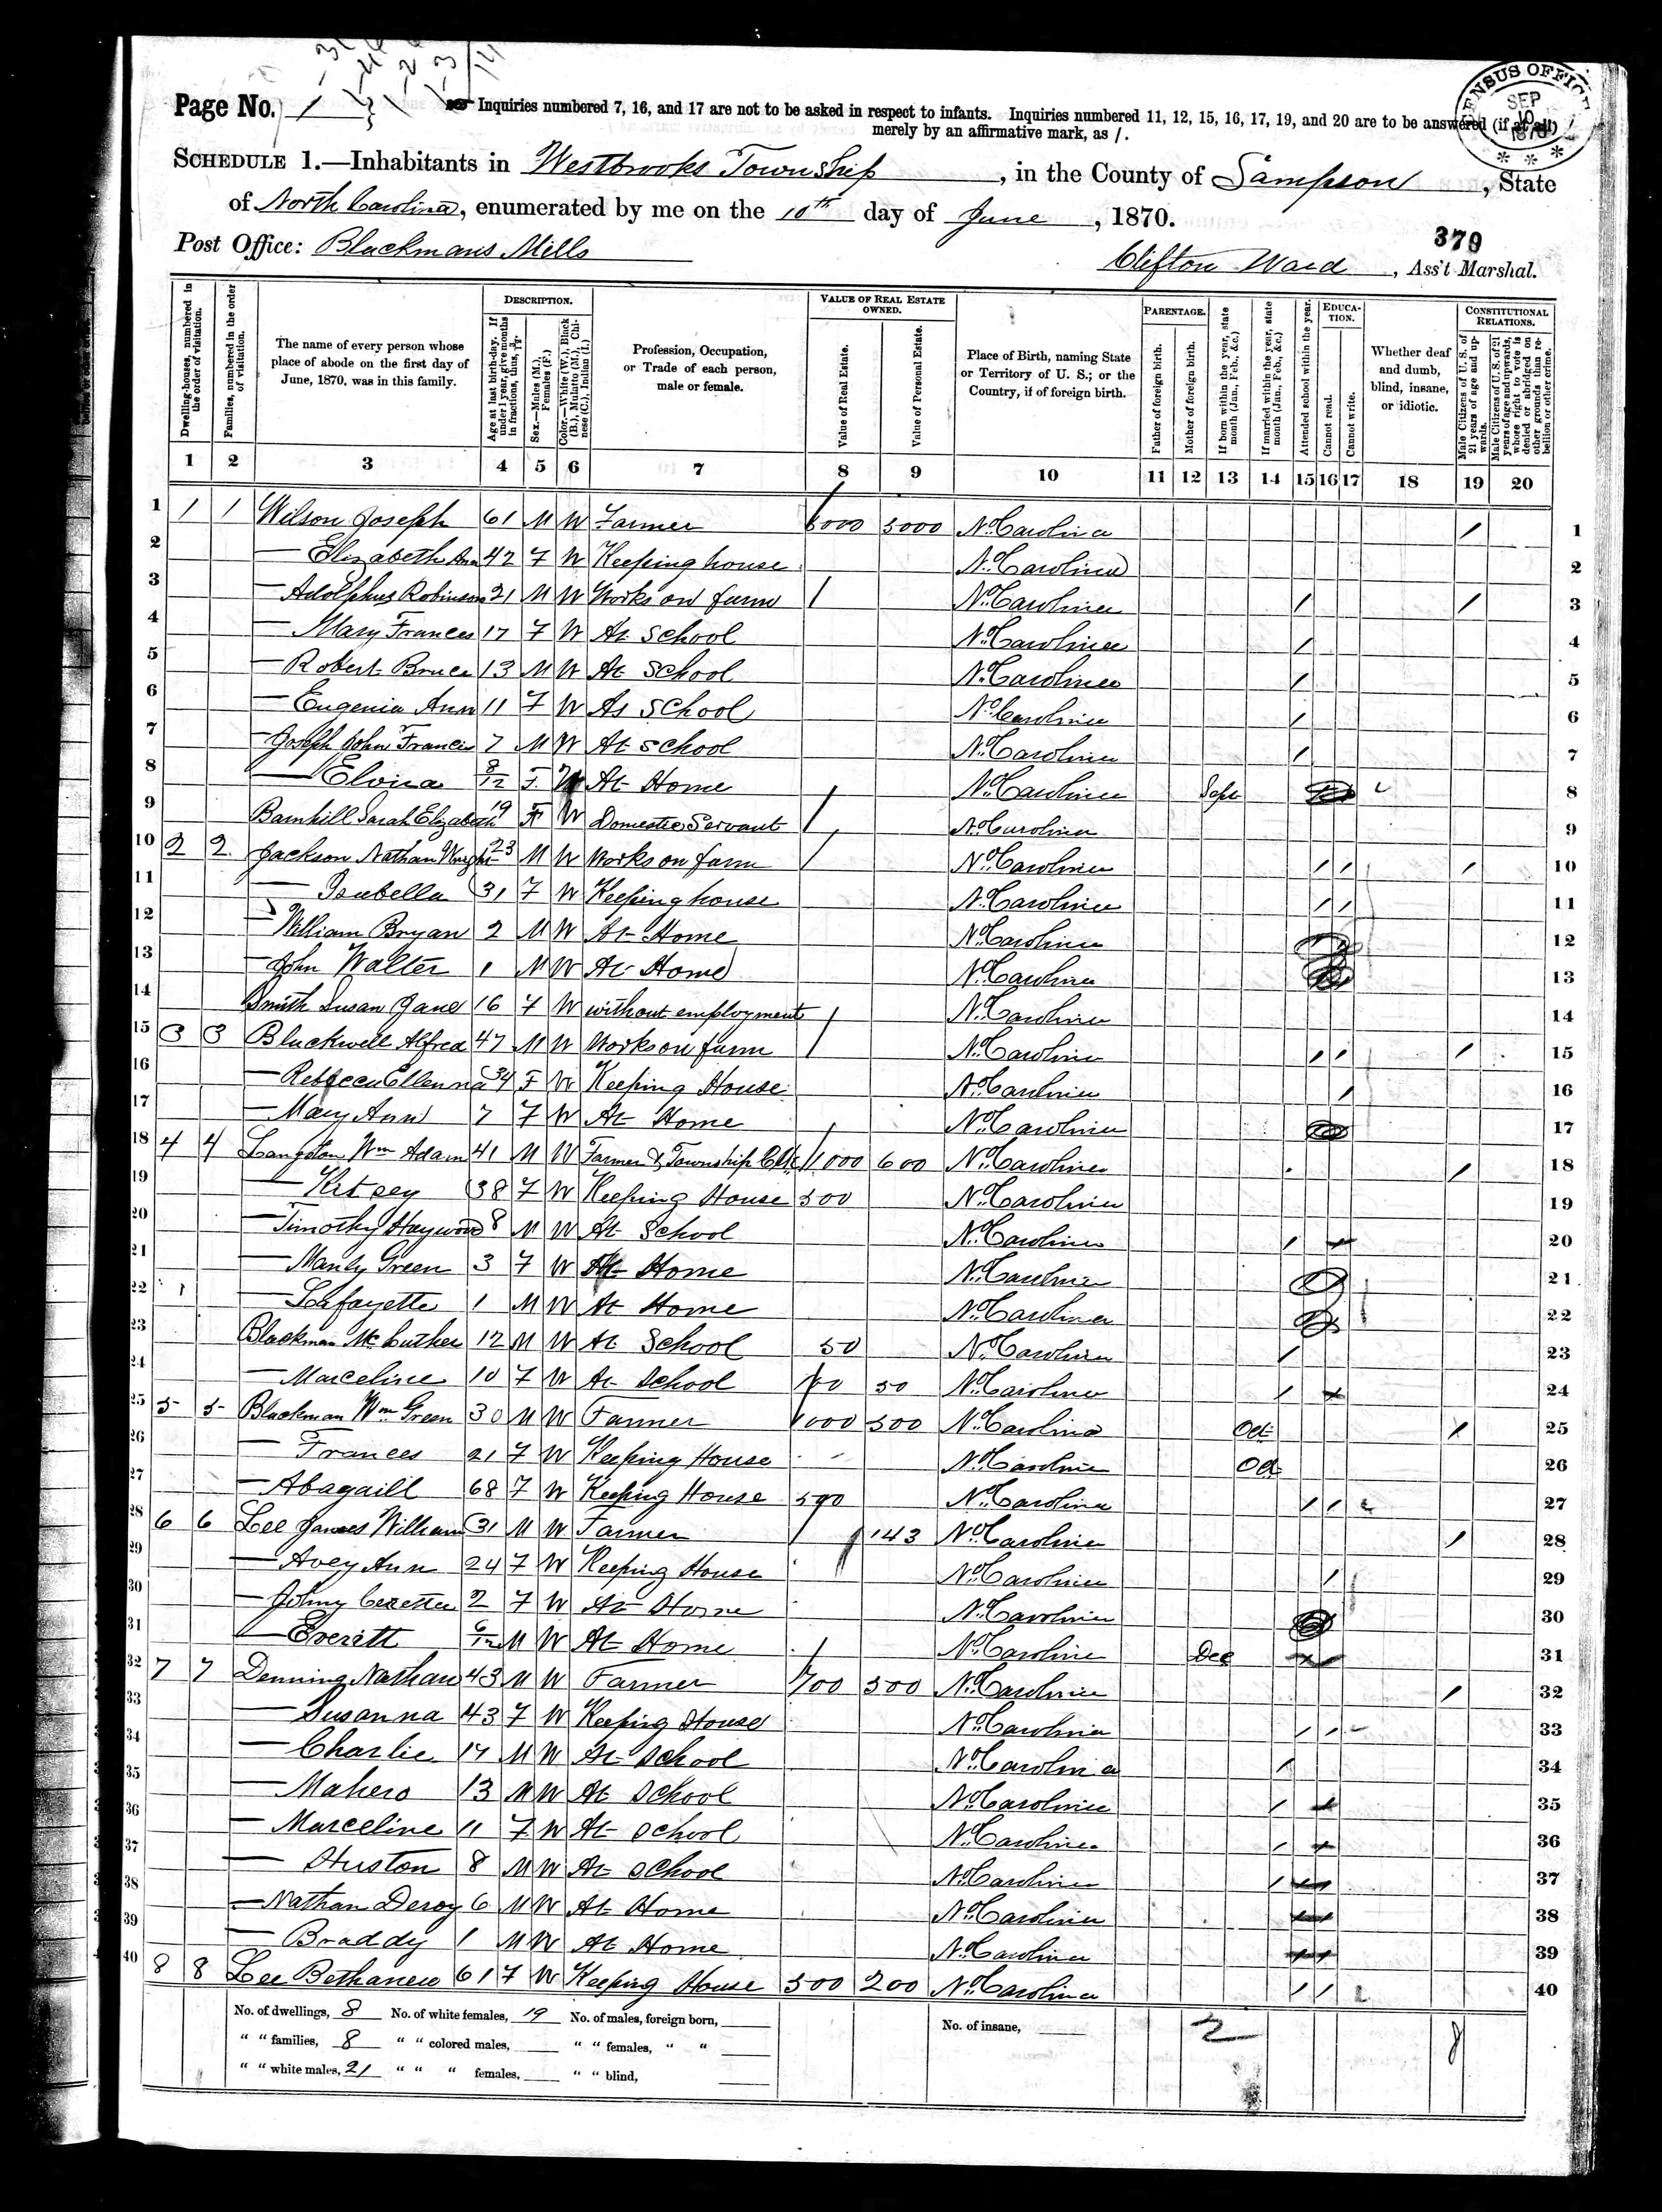 Page No. 1
Inquiries numbered 7, 16, and 17 are not to be asked in respect to infants. Inquiries numbered 11, 12, 15, 16, 17, 19, and 20 are to be answered (if at all)
merely by an affirmative mark, as /.
CENSUS OFFICE SEP 10 1870
SCHEDULE 1.—Inhabitants in Westbrooks Township, in the County of Sampson, State
of North Carolina, enumerated by me on the 10th day of June, 1870.
379
Post Office: Blackmans Mills
Clifton Ward, Ass't Marshal.
Dwelling-houses, numbered in the order of visitation.
Families, numbered in the order of visitation.
The name of every person whose place of abode on the first day of June, 1870, was in this family.
DESCRIPTION.
Age at last birth-day. If under 1 year, give months in fractions, thus, 3/12.
Sex.—Males (M.), Females (F.)
Color.—White (W.), Black (B.), Mulatto (M.), Chinese (C.), Indian (I.)
Profession, Occupation, or Trade of each person, male or female.
VALUE OF REAL ESTATE OWNED.
Value of Real Estate.
Value of Personal Estate.
Place of Birth, naming State or Territory of U. S.; or the Country, if of foreign birth.
PARENTAGE.
Father of foreign birth.
Mother of foreign birth.
If born within the year, state month (Jan., Feb., &c.)
If married within the year, state month (Jan., Feb., &c.)
Attended school within the year.
EDUCATION.
Cannot read.
Cannot write.
Whether deaf and dumb, blind, insane, or idiotic.
CONSTITUTIONAL RELATIONS.
Male Citizens of U. S. of 21 years of age and upwards.
Male Citizens of U. S. of 21 years of age and upwards, whose right to vote is denied or abridged on other grounds than rebellion or other crime.
1 2 3 4 5 6 7 8 9 10 11 12 13 14 15 16 17 18 19 20
1 1 1 Wilson Joseph 61 M W Farmer 5000 N. Carolina / 1
2 — Elizabeth Ann 42 F W Keeping house N. Carolina 2
3 — Adolphus Robinson 21 M W Works on farm N. Carolina / / 3
4 — Mary Frances 17 F W At School N. Carolina / 4
5 — Robert Bruce 13 M W At School N. Carolina / 5
6 — Eugenia Ann 11 F W At School N. Carolina / 6
7 — Joseph John Francis 7 M W At School N. Carolina / 7
8 — Elvira 8/12 F W At Home N. Carolina Sept 8
9 Barnhill Sarah Elizabeth 19 F W Domestic Servant N. Carolina 9
10 2 2 Jackson Nathan Wright 23 M W Works on farm N. Carolina / / / 10
11 — Isabella 31 F W Keeping house N. Carolina / / 11
12 — William Bryan 2 M W At Home N. Carolina 12
13 — John Walter 1 M W At Home N. Carolina 13
14 Smith Susan Jane 16 F W without employment N. Carolina 14
15 3 3 Blackwell Alfred 47 M W Works on farm N. Carolina / / / 15
16 — Rebecca Ellenna 34 F W Keeping House N. Carolina / 16
17 — Mary Ann 7 F W At Home N. Carolina 17
18 4 4 Langston Wm Adam 41 M W Farmer & Township Clk 1000 600 N. Carolina / 18
19 — Kitsey 38 F W Keeping House 500 N. Carolina 19
20 — Timothy Haywood 8 M W At School N. Carolina / 20
21 — Manly Green 3 F W At Home N. Carolina 21
22 — Lafayette 1 M W At Home N. Carolina 22
23 Blackman Mc Cuther 12 M W At School 50 N. Carolina / 23
24 — Marceline 10 F W At School 50 N. Carolina / 24
25 5 5 Blackman Wm Green 30 M W Farmer 1000 500 N. Carolina Oct / 25
26 — Frances 21 F W Keeping House N. Carolina Oct 26
27 — Abagaill 68 F W Keeping House 500 N. Carolina / / 27
28 6 6 Lee James William 31 M W Farmer 143 N. Carolina / 28
29 — Avey Ann 24 F W Keeping House N. Carolina / 29
30 — Johny 2 F W At Home N. Carolina 30
31 — Everitt 6/12 M W At Home N. Carolina Dec 31
32 7 7 Denning Nathan 43 M W Farmer 700 500 N. Carolina / 32
33 — Susanna 43 F W Keeping House N. Carolina / / 33
34 — Charlie 17 M W At School N. Carolina / 34
35 — Mahero 13 M W At School N. Carolina / 35
36 — Marceline 11 F W At School N. Carolina / 36
37 — Huston 8 M W At School N. Carolina / 37
38 — Nathan Deroy 6 M W At Home N. Carolina 38
39 — Braddy 1 M W At Home N. Carolina 39
40 8 8 Lee Bethanew 61 F W Keeping House 500 200 N. Carolina / / 40
No. of dwellings, 8 No. of white females, 19 No. of males, foreign born,
" " families, 8 " " colored males, " " females, " "
" " white males, 21 " " " females, " " blind,
No. of insane,
2
8